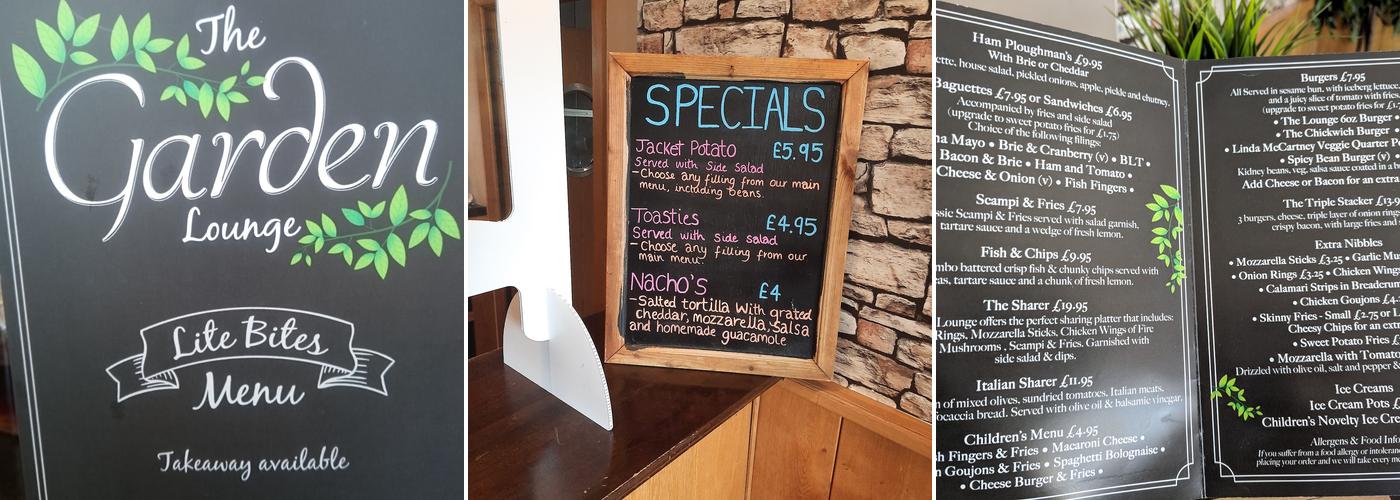 The
Garden
Lounge
Lite Bites
Menu
Takeaway available
SPECIALS
Jacket Potato £5.95
Served with Side Salad
-Choose any filling from our main
menu, including beans.
Toasties £4.95
Served with Side salad
-Choose any filling from our
main menu.
Nacho's £4
-Salted tortilla With grated
cheddar, mozzarella, Salsa
and homemade guacamole
Ham Ploughman's £9.95
With Brie or Cheddar
house salad, pickled onions, apple, pickle and chutney.
Baguettes £7.95 or Sandwiches £6.95
Accompanied by fries and side salad
(upgrade to sweet potato fries for £1.75)
Choice of the following filings:
Mayo • Brie & Cranberry (v) • BLT •
Bacon & Brie • Ham and Tomato •
Cheese & Onion (v) • Fish Fingers •
Scampi & Fries £7.95
Scampi & Fries served with salad garnish,
tartare sauce and a wedge of fresh lemon.
Fish & Chips £9.95
battered crisp fish & chunky chips served with
tartare sauce and a chunk of fresh lemon.
The Sharer £19.95
Lounge offers the perfect sharing platter that includes:
Rings, Mozzarella Sticks, Chicken Wings of Fire
Mushrooms , Scampi & Fries. Garnished with
side salad & dips.
Italian Sharer £11.95
of mixed olives, sundried tomatoes, Italian meats,
focaccia bread. Served with olive oil & balsamic vinegar.
Children's Menu £4.95
Fingers & Fries • Macaroni Cheese •
Goujons & Fries • Spaghetti Bolognaise •
• Cheese Burger & Fries •
Burgers £7.95
All Served in sesame bun, with iceberg lettuce,
and a juicy slice of tomato with fries.
(upgrade to sweet potato fries for
• The Lounge 6oz Burger •
• The Chickwich Burger
• Linda McCartney Veggie Quarter
• Spicy Bean Burger (v)
Kidney beans, veg, salsa sauce coated in a
Add Cheese or Bacon for an extra
The Triple Stacker
3 burgers, cheese, triple layer of onion
crispy bacon, with large fries and
Extra Nibbles
• Mozzarella Sticks £3.25 • Garlic
• Onion Rings £3.25 • Chicken Wings
• Calamari Strips in
• Chicken Goujons
• Skinny Fries - Small £2.75 or
Cheesy Chips for an
• Sweet Potato Fries
• Mozzarella with
Drizzled with olive oil, salt and pepper &
Ice Creams
Ice Cream Pots
Children's Novelty Ice
Allergens & Food
If you suffer from a food allergy or
placing your order and we will take every